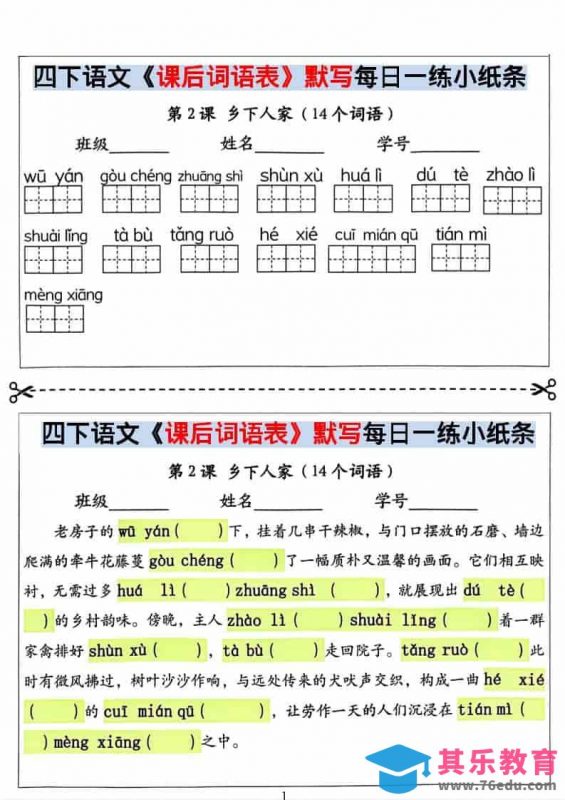 四下语文《课后词语表》默写每日一练小纸条
第2课 乡下人家（14个词语）
班级______ 姓名______ 学号______
wū yán gòu chéng zhuāng shì shùn xù huá lì dú tè zhào lì
shuài lǐng tà bù tǎng ruò hé xié cuī mián qū tián mì
mèng xiāng
四下语文《课后词语表》默写每日一练小纸条
第2课 乡下人家（14个词语）
班级______ 姓名______ 学号______
老房子的 wū yán（ ）下，挂着几串干辣椒，与门口摆放的石磨、墙边
爬满的牵牛花藤蔓 gòu chéng（ ）了一幅质朴又温馨的画面。它们相互映
衬，无需过多 huá lì（ ）zhuāng shì（ ），就展现出 dú tè（
）的乡村韵味。傍晚，主人 zhào lì（ ）shuài lǐng（ ）着一群
家禽排好 shùn xù（ ），tà bù（ ）走回院子。tǎng ruò（ ）此
时有微风拂过，树叶沙沙作响，与远处传来的犬吠声交织，构成一曲 hé xié
（ ）的 cuī mián qū（ ），让劳作一天的人们沉浸在 tián mì（
）mèng xiāng（ ）之中。
其乐教育
www.76edu.com
1